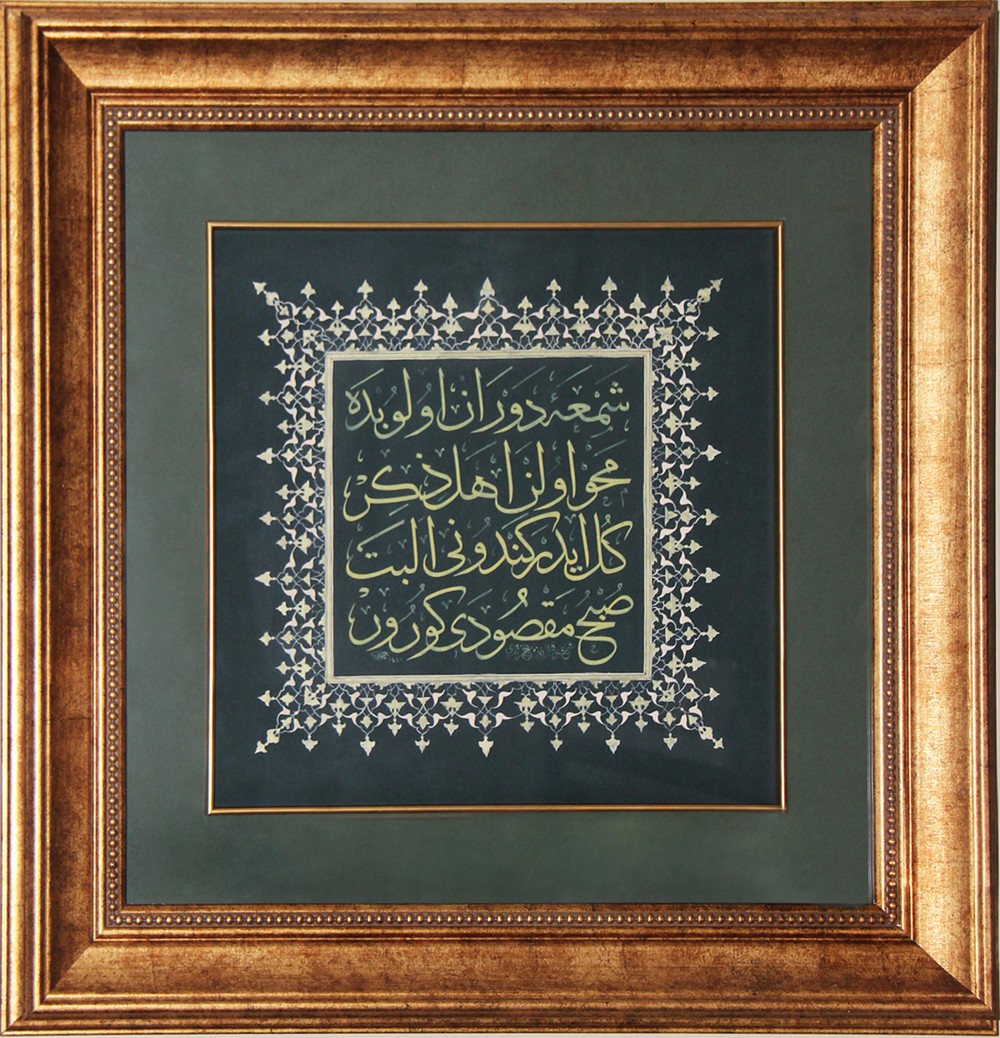 شمعهٔ دوران اولوبده
محو اولن اهل ذكر
كل ايدر كندونی البت
صبح مقصودی كورور